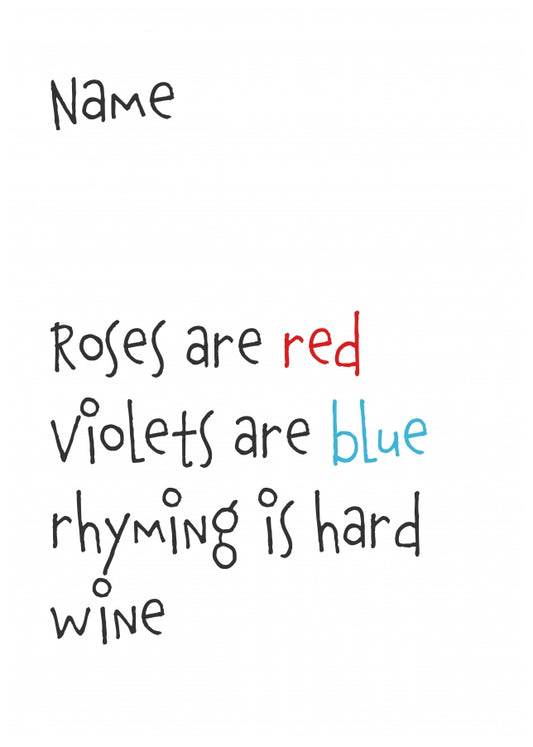 Name
Roses are red
Violets are blue
rhyming is hard
wine